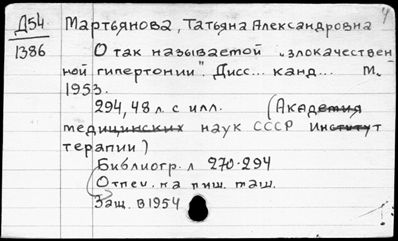 Д54
1386
Мартьянова, Татьяна Александровна
О так называемой "злокачествен
ной гипертонии". Дисс... канд... М.,
1953.
294, 48 л. с илл. (Академия
медицинских наук СССР Институт
терапии)
Библиогр. л 270-294
Отпеч. на пиш. маш.
Защ. в 1954